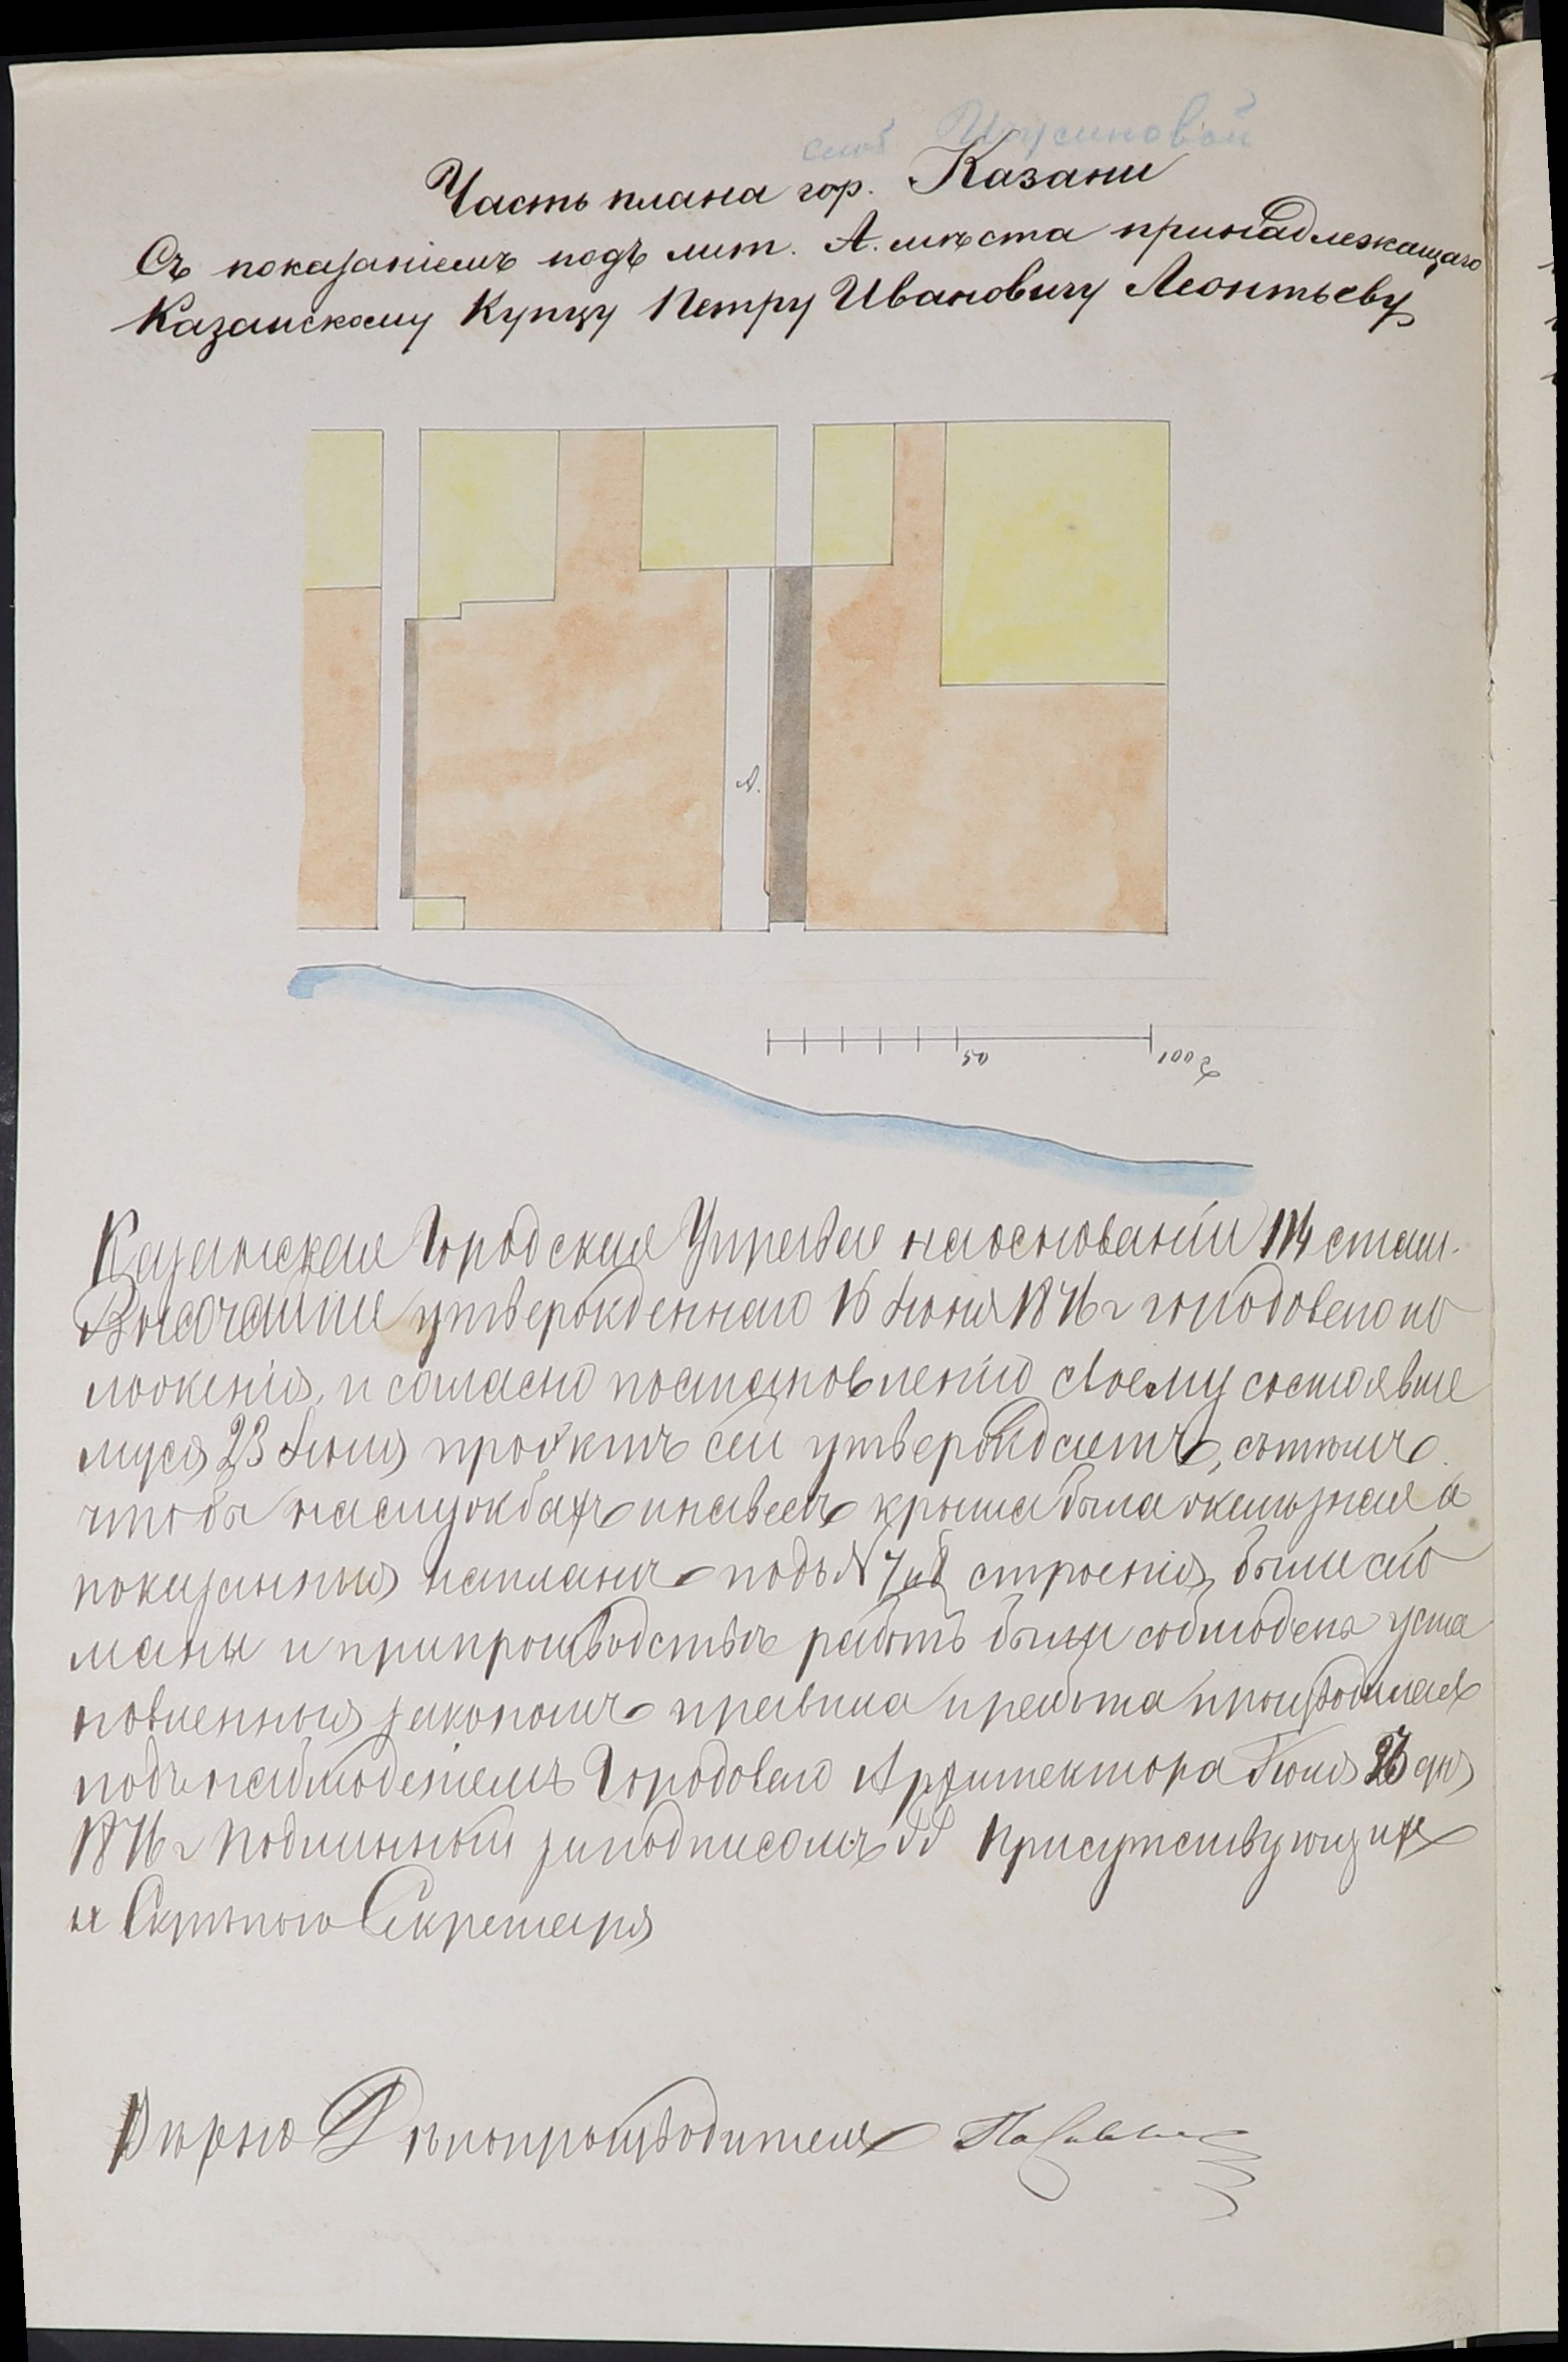 Часть плана гор. Казани
Съ показаніемъ подъ лит. А. мѣста принадлежащаго
Казанскому Купцу Петру Ивановичу Леонтьеву
А.
50
100 с
Казанская Городская Управа на основаніи 114 стат.
Высочайше утвержденнаго 16 Іюня 1870 г городоваго по
ложенія, и согласно постановленію своему состоявше
муся 23 Іюля проэктъ сей утверждаетъ, съ тѣмъ
чтобы на службахъ и навесѣ крыша была желѣзная а
показанныя на планѣ подъ N 7 и 8 строенія, были сло
маны и при производствѣ работъ были соблюдены уста
новленныя закономъ правила и работа производилась
подъ наблюденіемъ Городоваго Архитектора Іюля дня
1876 г Подлинный за подписомъ Г.г. Присутствующихъ
и Скрѣпою Секретаря
Вѣрно Дѣлопроизводитель